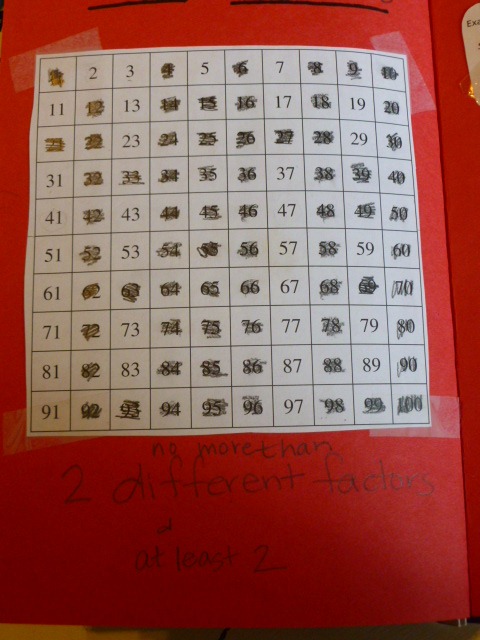 2 3 4 5 6 7 8 9 10
11 12 13 14 15 16 17 18 19 20
21 22 23 24 25 26 27 28 29 30
31 32 33 34 35 36 37 38 39 40
41 42 43 44 45 46 47 48 49 50
51 52 53 54 56 57 58 59 60
61 62 63 64 65 66 67 68 69 70
71 72 73 74 75 76 77 78 79 80
81 82 83 84 85 86 87 88 89 90
91 92 93 94 95 96 97 98 99 100
no more than
2 different factors
at least 2